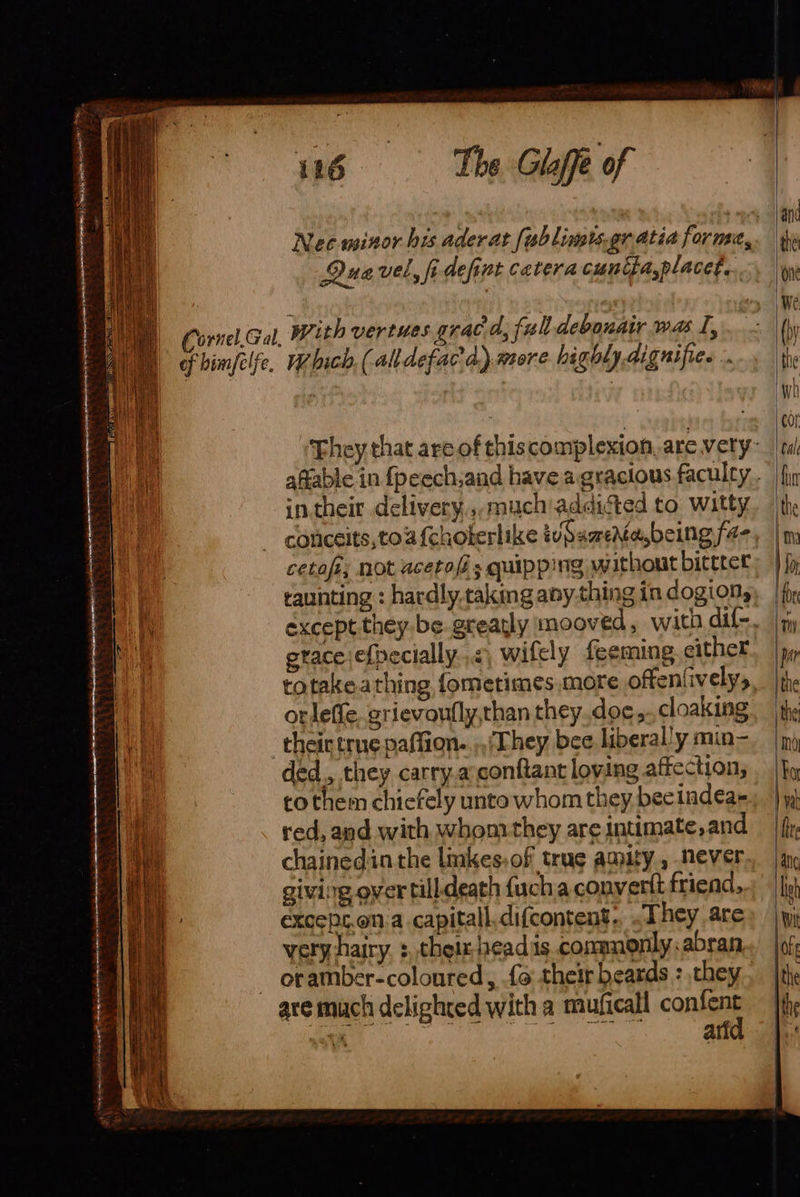 116 The Glaſſe of
Nec minor his aderat ſublimis gratia formæ,
Quæ vel, ſi deſint cætera cuncta, placet.
Cornel. Gal. With vertues grac'd, full debonair was I,
of himſelfe. Which (all defac'd) more highly dignifie.
They that are of this complexion, are very
affable in ſpeech, and have a gracious faculty
in their delivery, much addicted to witty
conceits, to a ſcholerlike being fa-
cetoſi, not acetoſi; quipping without bittter
taunting: hardly taking any thing in dogion,
except they be greatly mooved, with diſ-
grace eſpecially: wiſely ſeeming either
to take a thing ſometimes more offenſively,
or leſſe grievouſly, than they doe, cloaking
their true paſſion. They bee liberally min-
ded, they carry a conſtant loving affection,
to them chiefely unto whom they bee indea-
red, and with whom they are intimate, and
chained in the linkes of true amity, never
giving over till death ſuch a converſt friend,
except on a capitall diſcontent. They are
very hairy: their head is commonly abran,
or amber-coloured, ſo their beards: they
are much delighted with a muſicall conſent
and